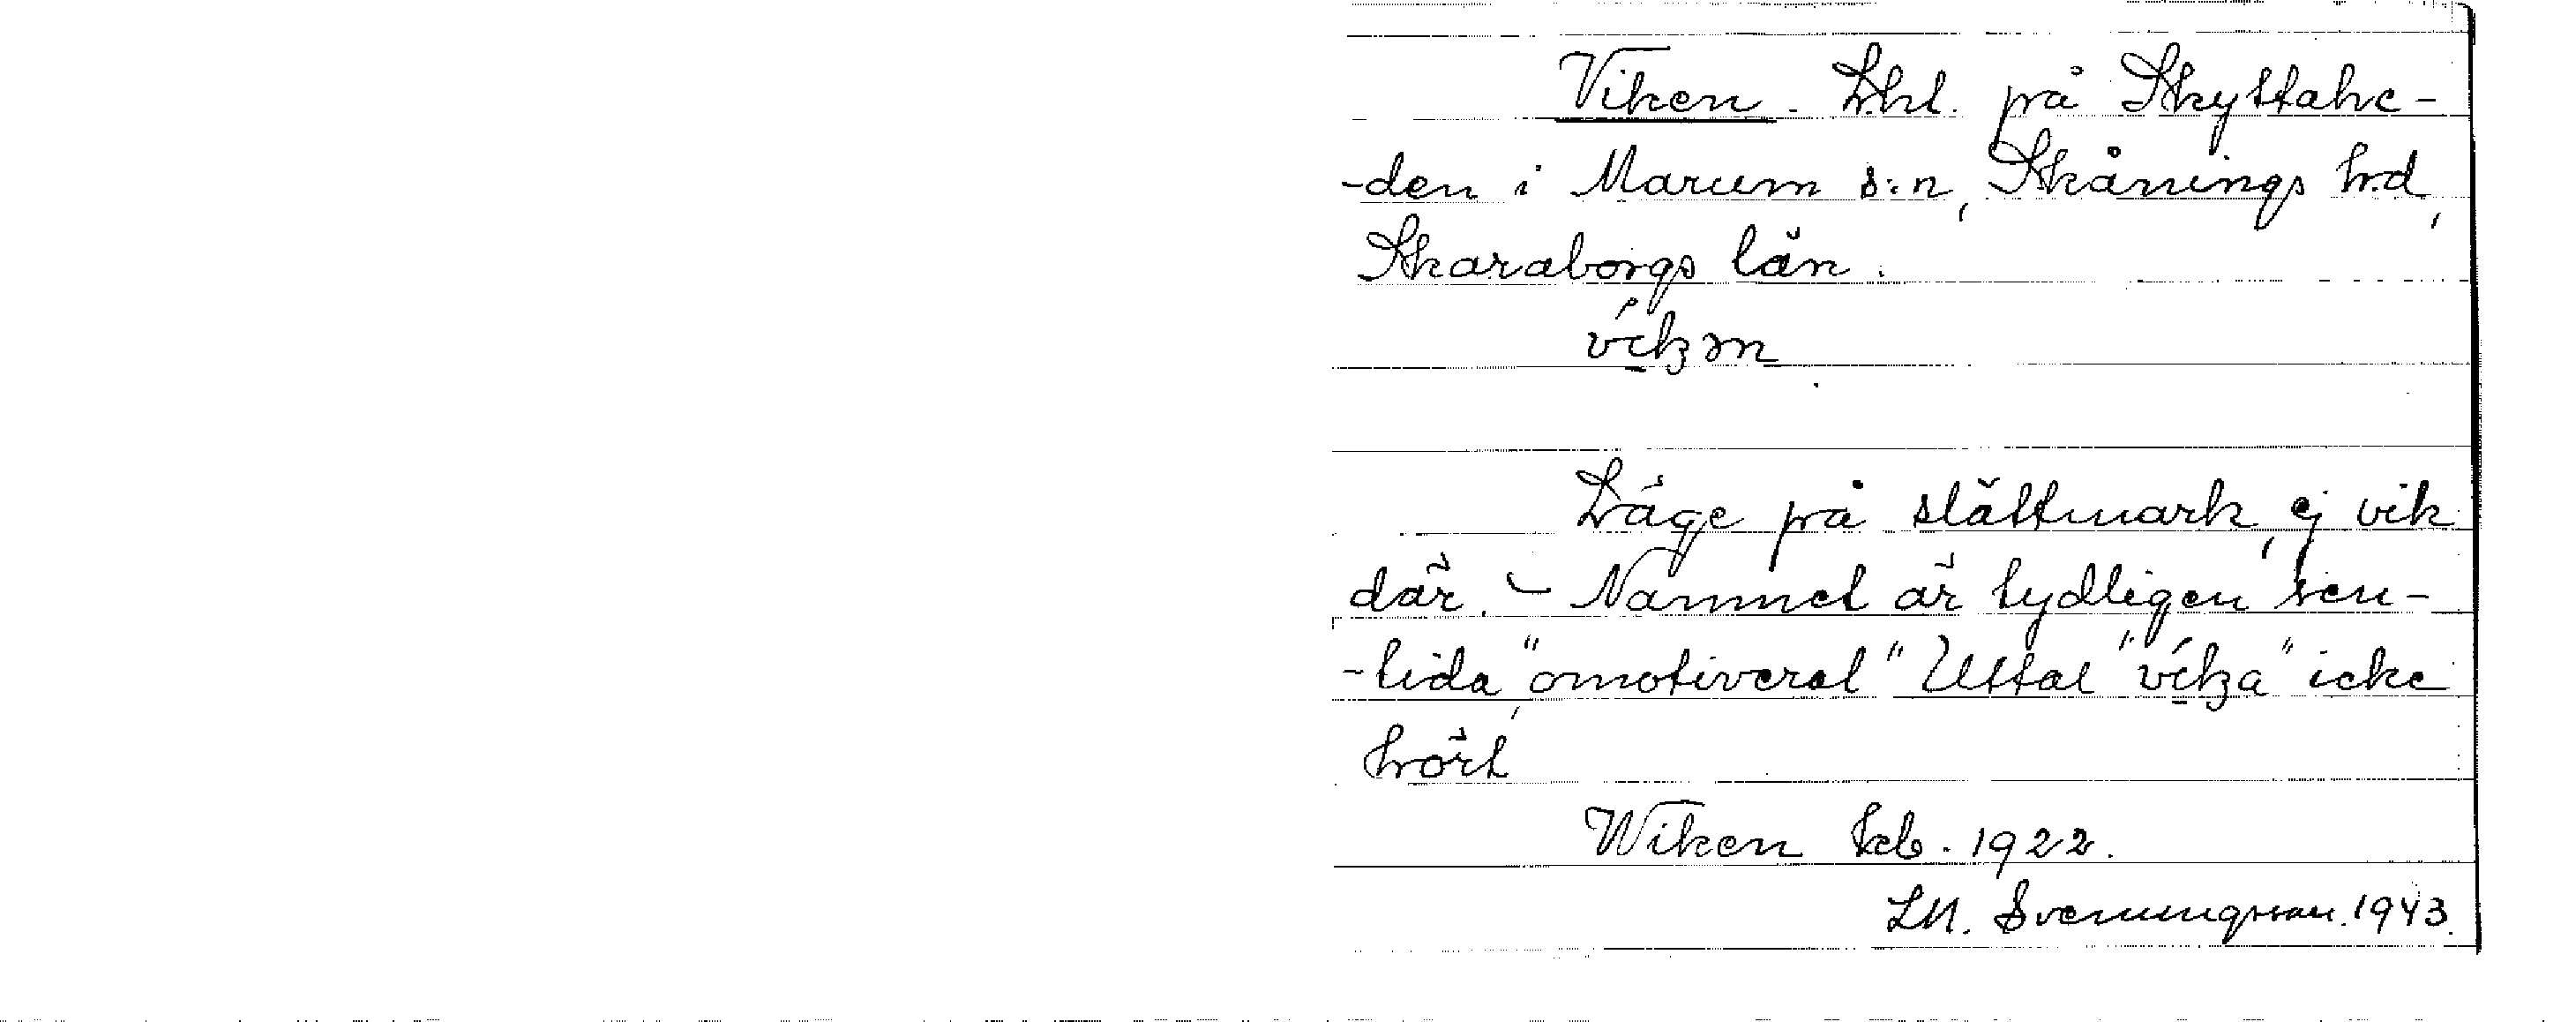 Viken. Lht. på Skyttahe-
-den i Marum s:n, Skånings hd,
Skaraborgs län.
Läge på slättmark, ej vik
där. - Namnet är tydligen sen-
-tida, "omotiverat" Uttal "víka" icke
hört
Wiken kb. 1922.
LM. Svenungsson. 1943.